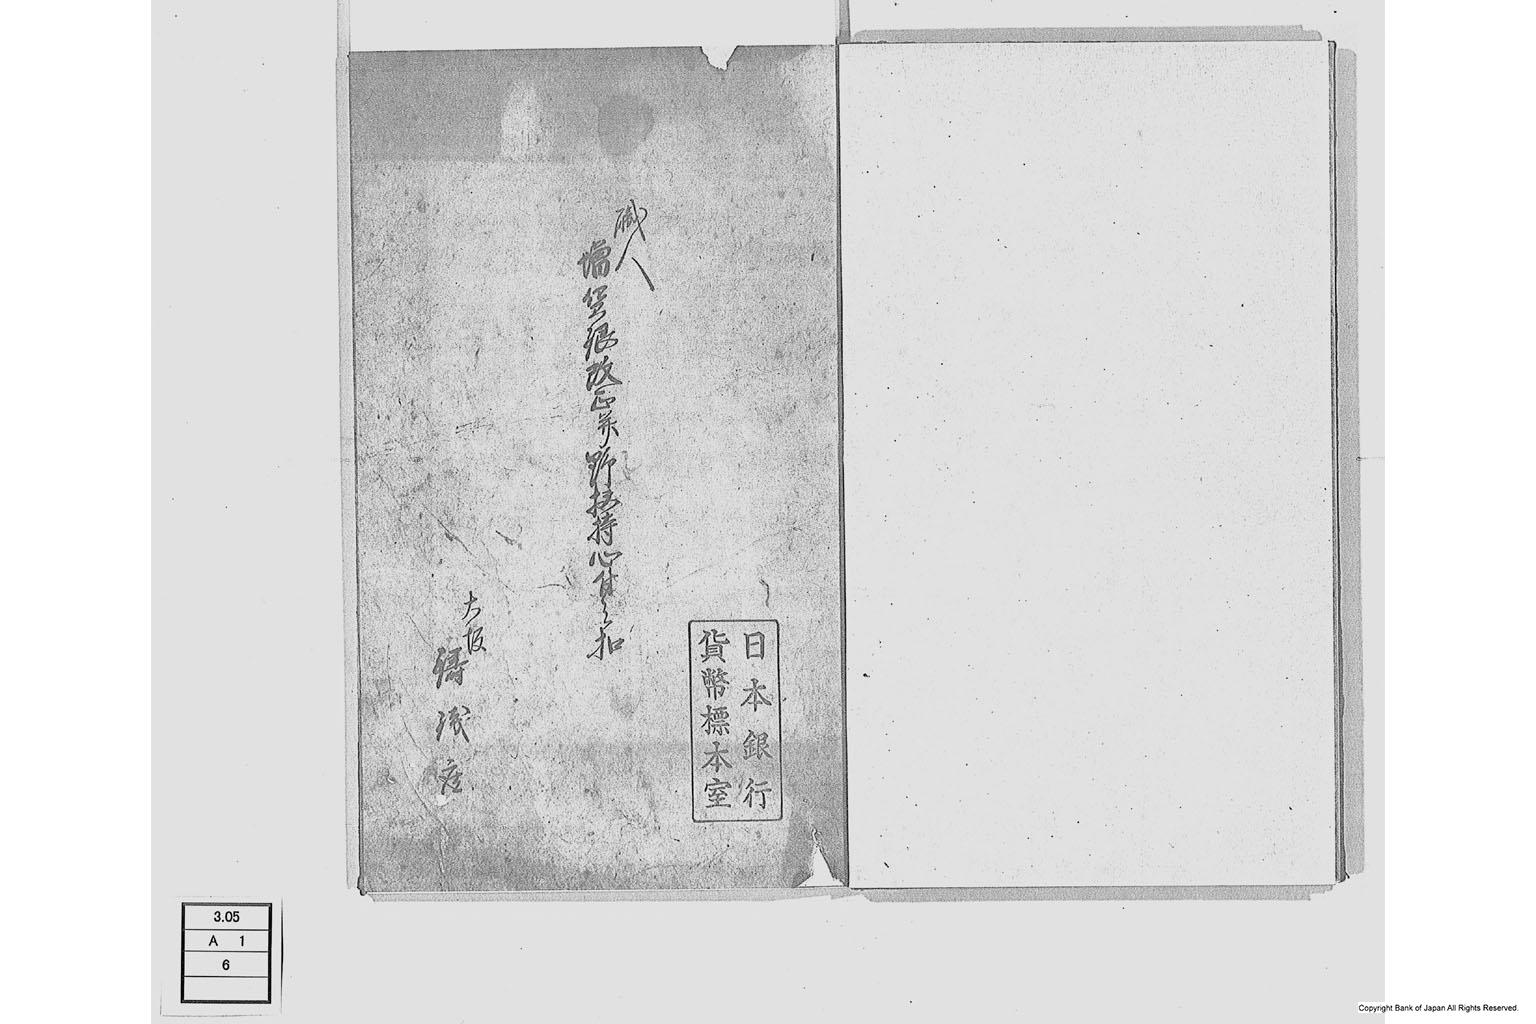 日本銀行
貨幣標本室
職人
増銀改正并野扶持心付之扣
大坂
鋳銭座
3.05
A 1
6
Copyright Bank of Japan All Rights Reserved.